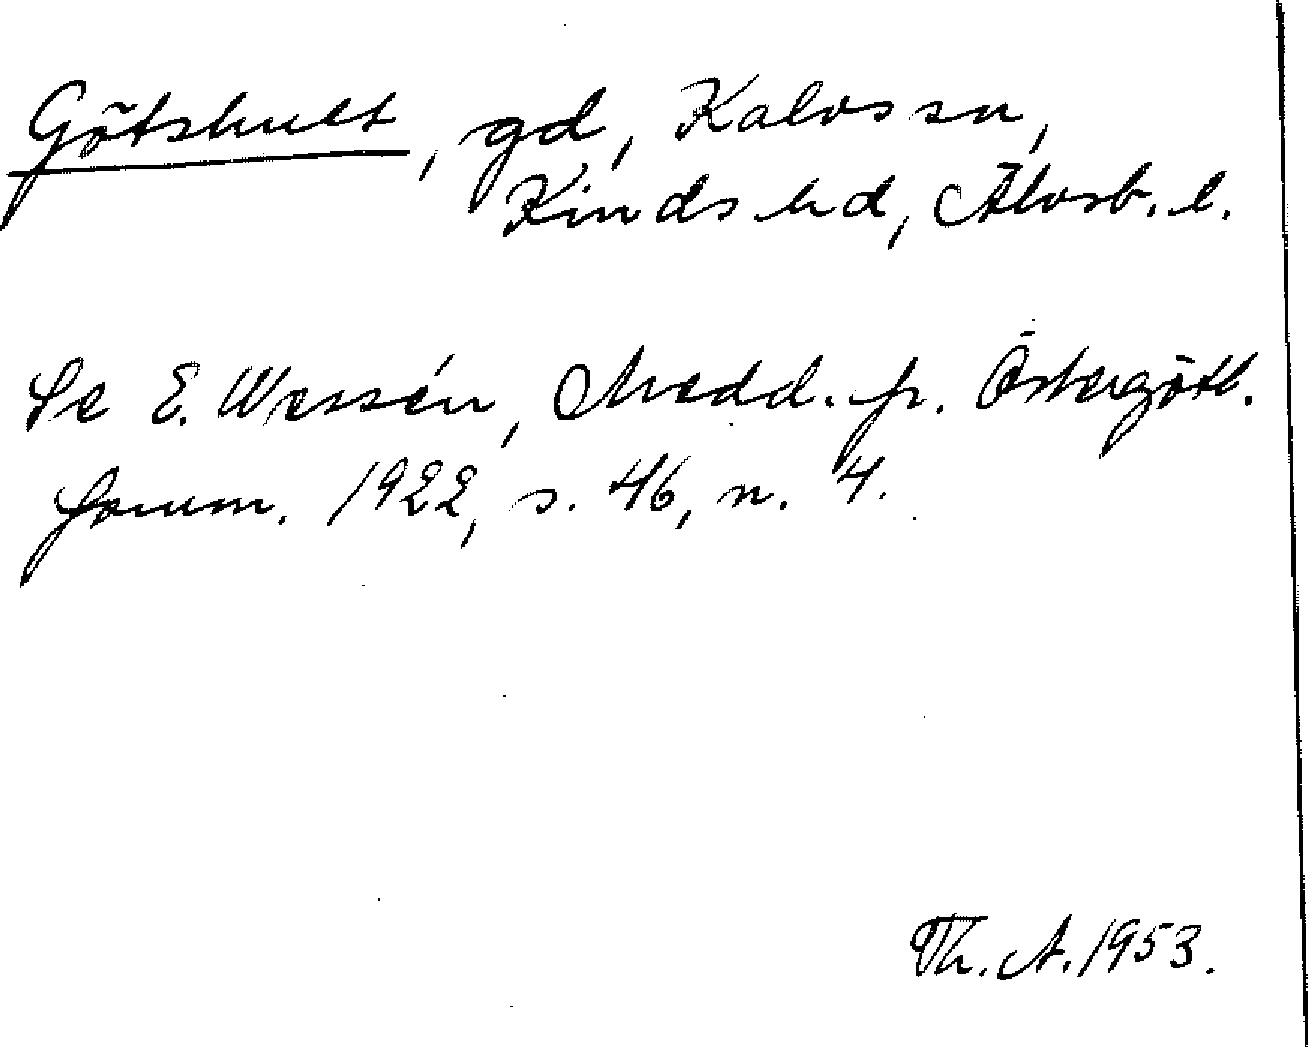 Götshult, gd, Kalvs sn,
Kinds hd, Älvsb. l.
Se E. Wessén, Medd. fr. Östergötl.
fornm. 1922, s. 46, n. 4.
Th. A. 1953.